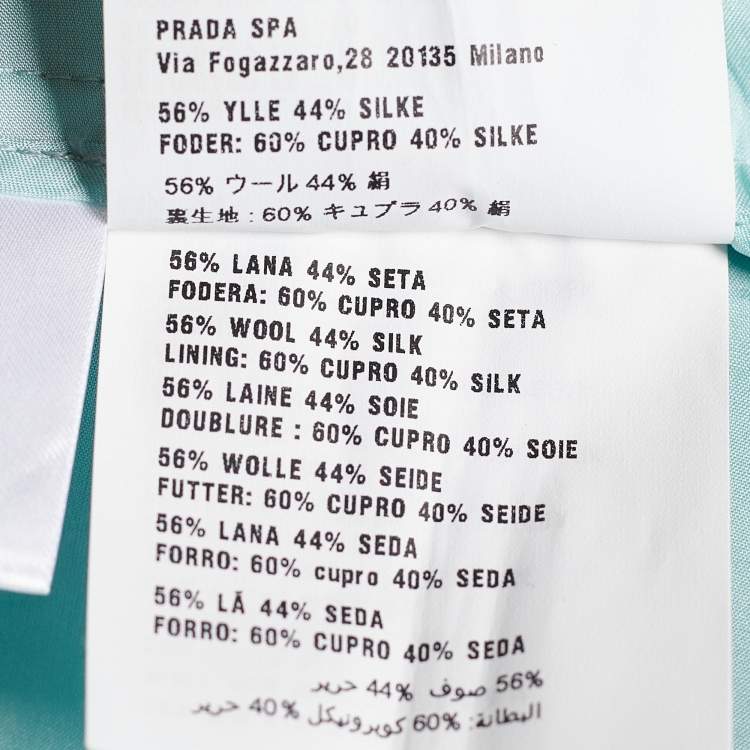 PRADA SPA
Via Fogazzaro,28 20135 Milano
56% YLLE 44% SILKE
FODER: 60% CUPRO 40% SILKE
56% ウール 44% 絹
裏生地 : 60% キュプラ 40% 絹
56% LANA 44% SETA
FODERA: 60% CUPRO 40% SETA
56% WOOL 44% SILK
LINING: 60% CUPRO 40% SILK
56% LAINE 44% SOIE
DOUBLURE : 60% CUPRO 40% SOIE
56% WOLLE 44% SEIDE
FUTTER: 60% CUPRO 40% SEIDE
56% LANA 44% SEDA
FORRO: 60% cupro 40% SEDA
56% LÃ 44% SEDA
FORRO: 60% CUPRO 40% SEDA
56% صوف 44% حرير
البطانة: 60% كوبرونيكل 40% حرير